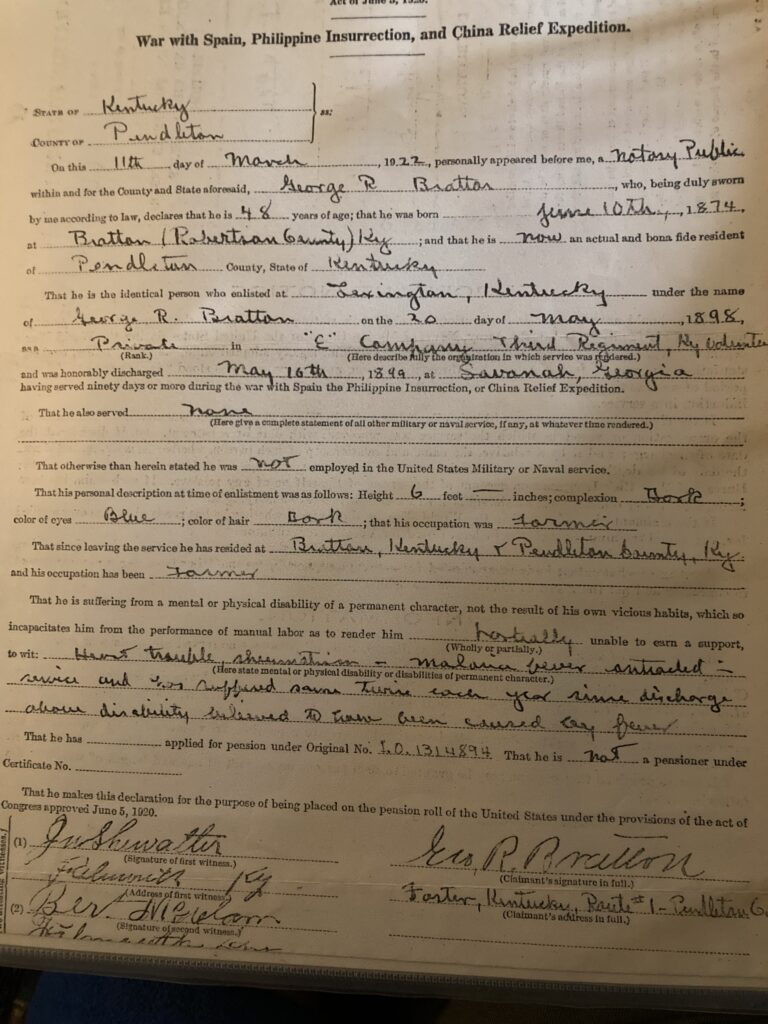 Act of June 5, 1920.
War with Spain, Philippine Insurrection, and China Relief Expedition.
STATE OF Kentucky
ss:
COUNTY OF Pendleton
On this 11th day of March, 1922, personally appeared before me, a Notary Public
within and for the County and State aforesaid, George R Bratton, who, being duly sworn
by me according to law, declares that he is 48 years of age; that he was born June 10th, 1874,
at Bratton (Robertson County) Ky; and that he is now an actual and bona fide resident
of Pendleton County, State of Kentucky
That he is the identical person who enlisted at Lexington, Kentucky under the name
of George R. Bratton on the 20 day of May, 1898,
as a Private in "E" Company Third Regiment, Ky Volunteer
(Rank.) (Here describe fully the organization in which service was rendered.)
and was honorably discharged May 16th, 1899, at Savanah, Georgia
having served ninety days or more during the war with Spain the Philippine Insurrection, or China Relief Expedition.
That he also served none
(Here give a complete statement of all other military or naval service, if any, at whatever time rendered.)
That otherwise than herein stated he was not employed in the United States Military or Naval service.
That his personal description at time of enlistment was as follows: Height 6 feet — inches; complexion Dark;
color of eyes Blue; color of hair Dark; that his occupation was Farmer
That since leaving the service he has resided at Bratton, Kentucky & Pendleton County, Ky.
and his occupation has been Farmer
That he is suffering from a mental or physical disability of a permanent character, not the result of his own vicious habits, which so
incapacitates him from the performance of manual labor as to render him partially unable to earn a support,
(Wholly or partially.)
to wit: Heart trouble, rheumatism - Malaria fever contracted in
(Here state mental or physical disability or disabilities of permanent character.)
service and has suffered same twice each year since discharge
above disability believed to have been caused by fever
That he has applied for pension under Original No. I.O. 1314894 That he is not a pensioner under
Certificate No.
That he makes this declaration for the purpose of being placed on the pension roll of the United States under the provisions of the act of
Congress approved June 5, 1920.
(1) Shewalter
(Signature of first witness.)
Falmouth Ky.
(Address of first witness.)
(2) Ber.
(Signature of second witness.)
Falmouth
witnesses.)
Geo. R. Bratton
(Claimant's signature in full.)
Foster, Kentucky, Route #1 - Pendleton Co.
(Claimant's address in full.)